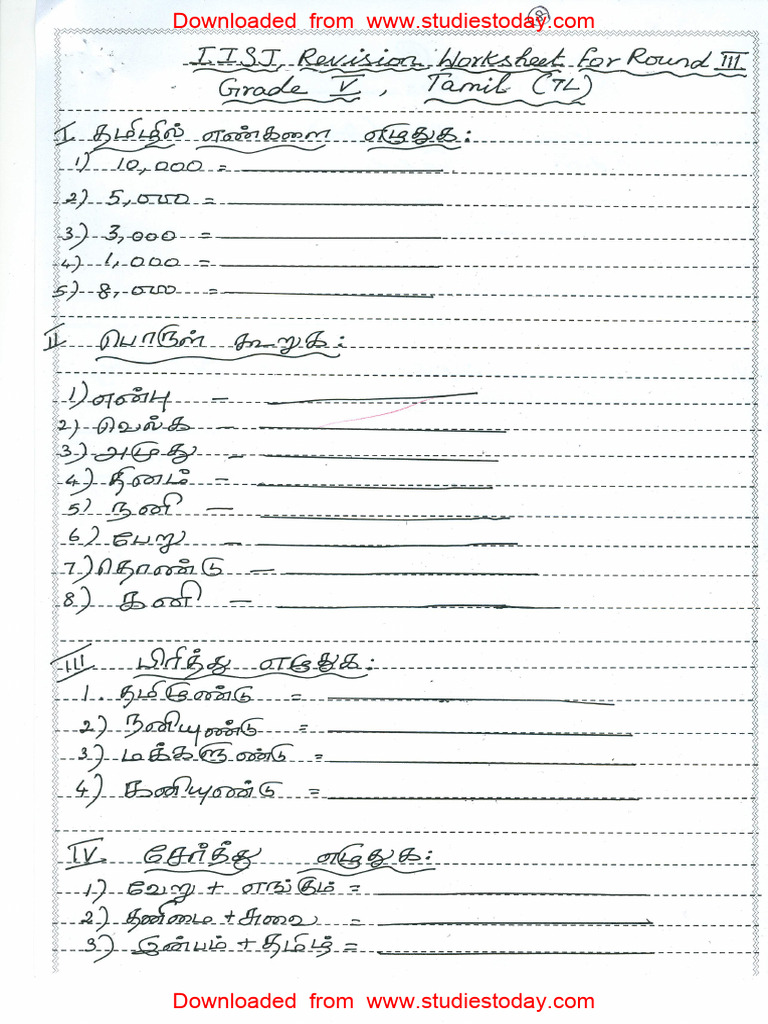 Downloaded from www.studiestoday.com
IISJ Revision Worksheet for Round III
Grade V, Tamil (TL)
I தமிழில் எண்களை எழுதுக:
1) 10,000 =
2) 5,000 =
3) 3,000 =
4) 1,000 =
5) 8,000 =
II பொருள் கூறுக:
1) என்பு –
2) வெல்க –
3) அமுது –
4) தினம் –
5) நனி –
6) பேறு –
7) தொண்டு –
8) கனி –
III பிரித்து எழுதுக:
1. தமிழுண்டு =
2) நனியுண்டு =
3) மக்களுண்டு =
4) கனியுண்டு =
IV. சேர்த்து எழுதுக:
1) வேறு + எங்கும் =
2) தனிமை + சுவை =
3) இன்பம் + தமிழ் =
Downloaded from www.studiestoday.com